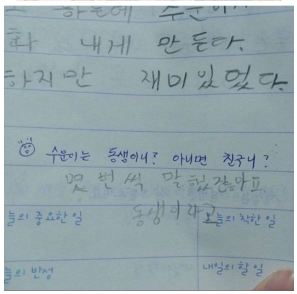 하는데 수운이가
화 내게 만든다.
하지만 재미있었다.
수운이는 동생이니? 아니면 친구니?
몇 번씩 말 했잖아요
동생이라고
늘의 중요한 일 늘의 착한 일
늘의 반성 내일의 할 일